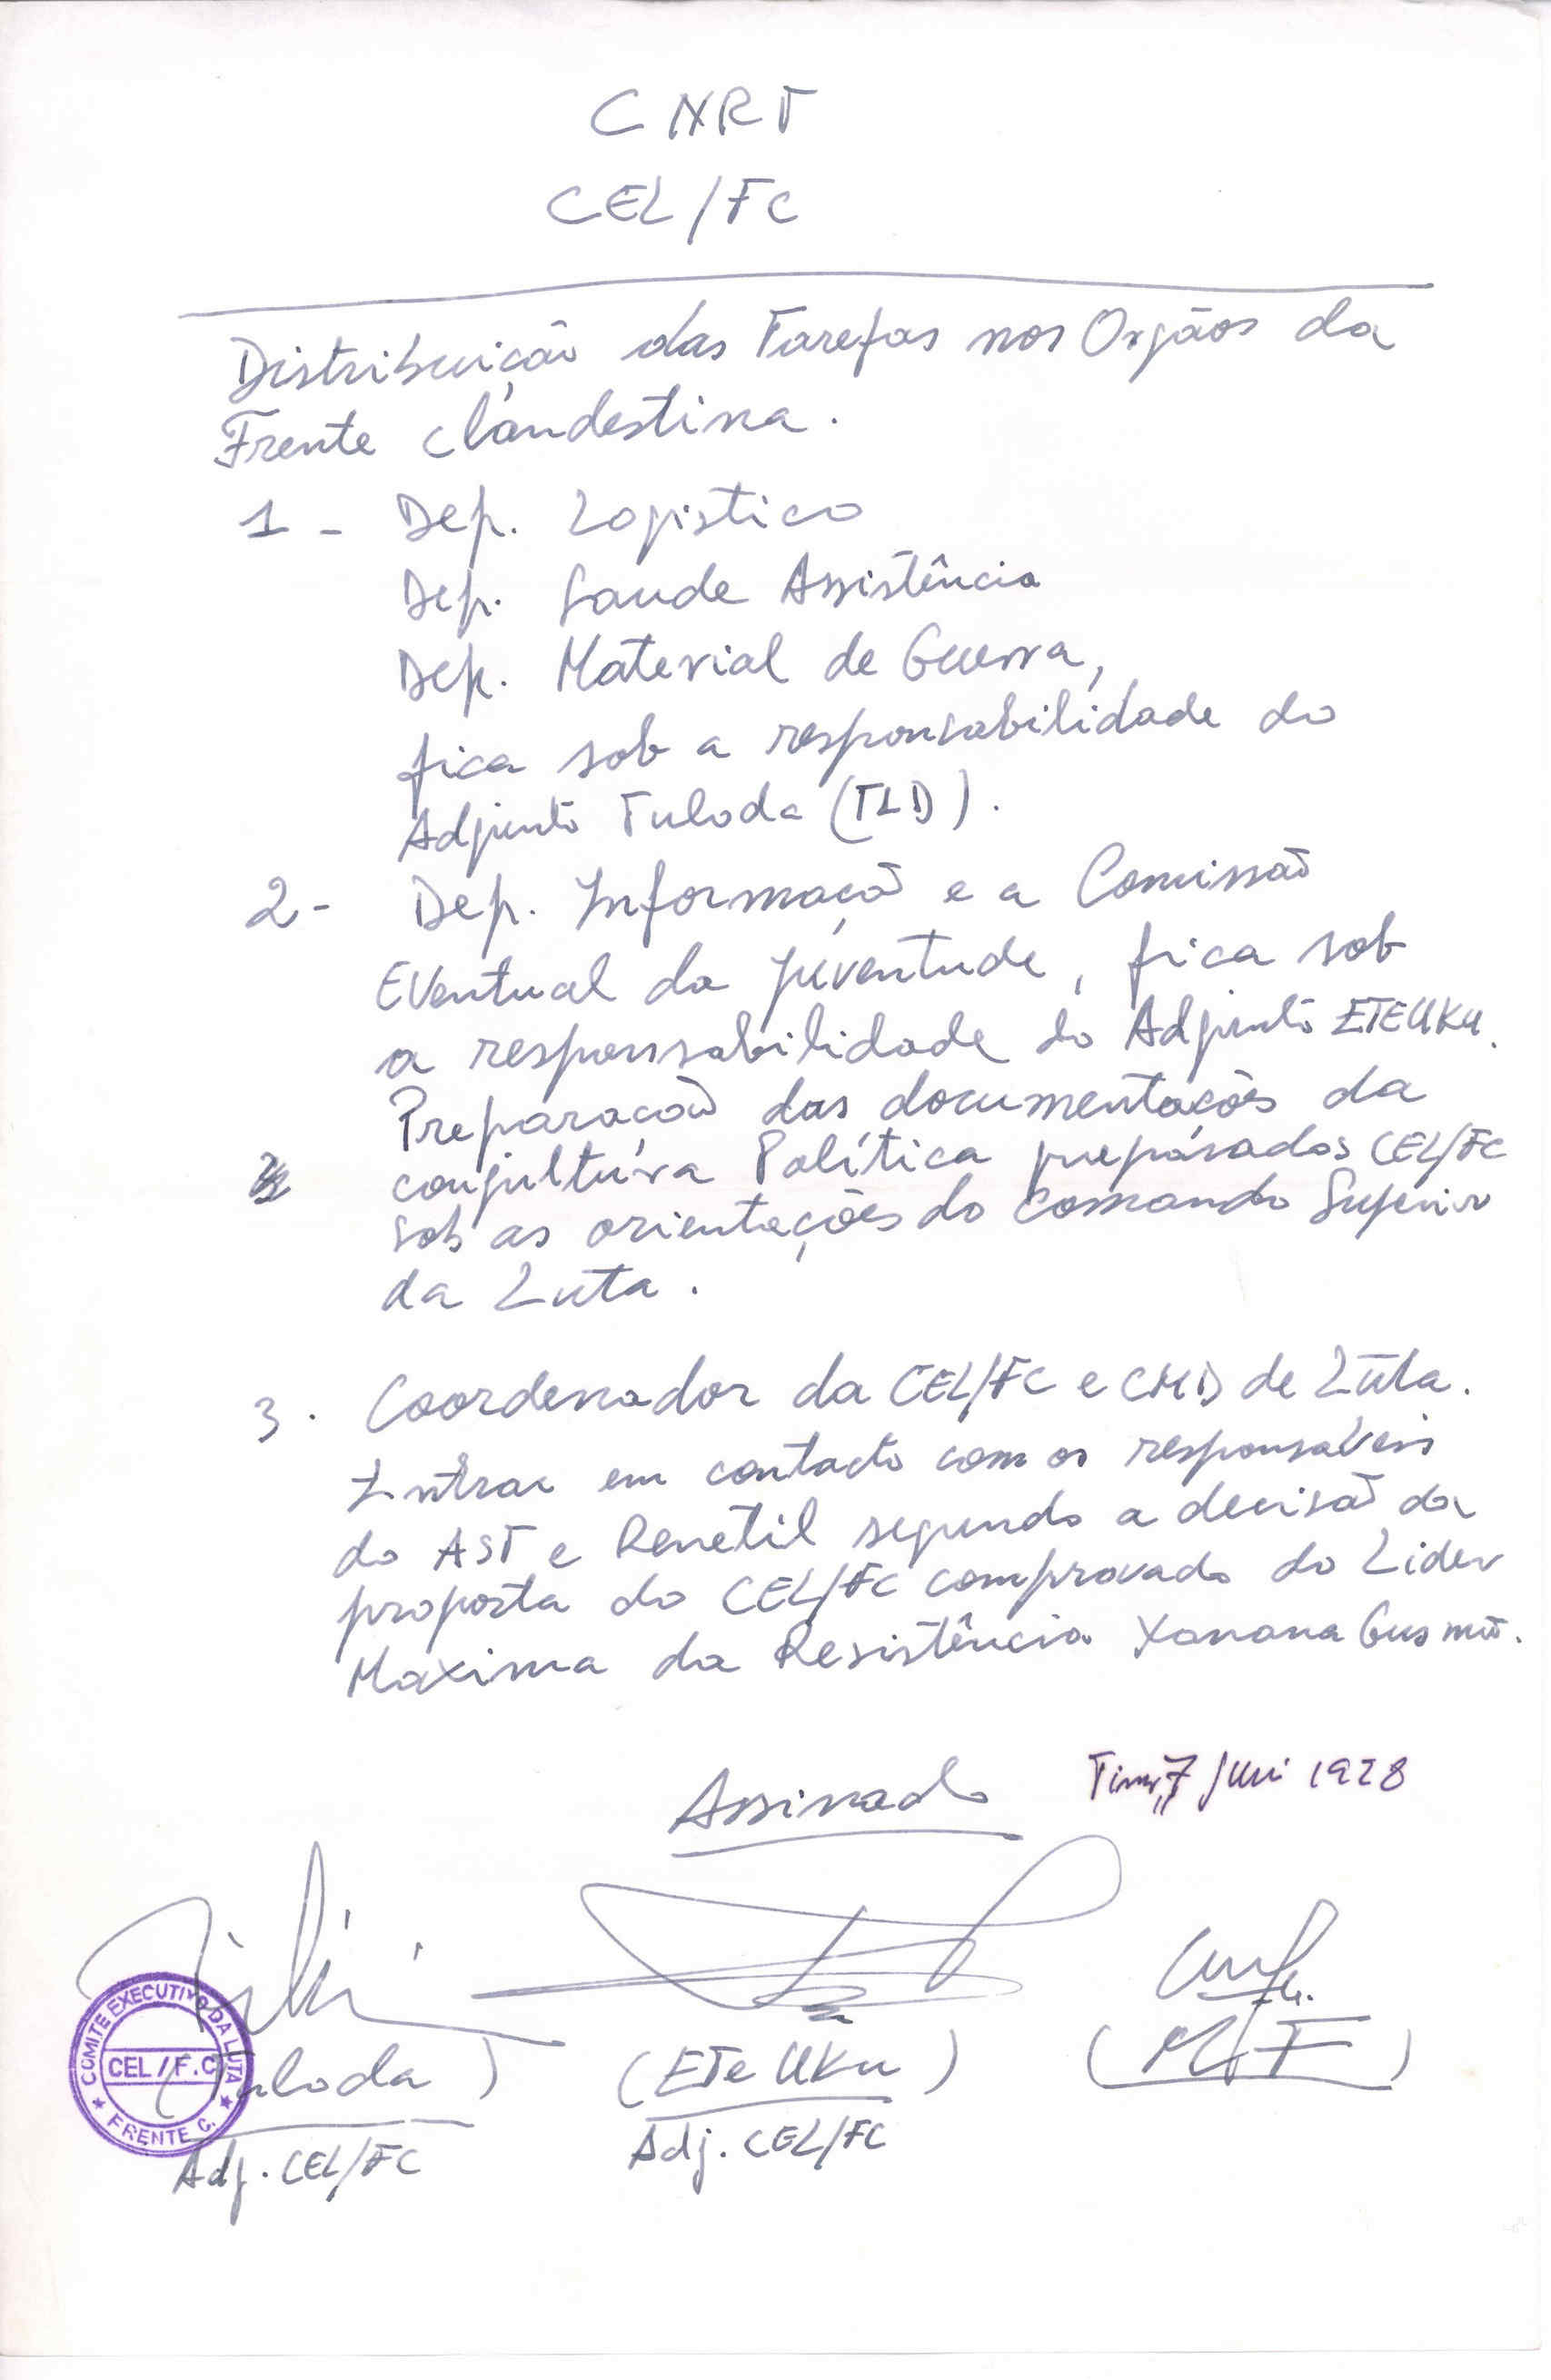 CNRT
CEL/FC
Distribuição das Tarefas nos Orgãos da
Frente Clandestina.
1 - Dep. Logistico
Dep. Saude Assistência
Dep. Material de Guerra,
fica sob a responsabilidade do
Adjunto Tuloda (TLD).
2- Dep. Informação e a Comissão
Eventual da juventude, fica sob
a responsabilidade do Adjunto ETEUKU.
Preparação das documentações da
conjultura Política preparados CEL/FC
sob as orientações do Comando Superior
da Luta.
3. Coordenador da CEL/FC e CMD de Luta.
Entrar em contacto com os responsaveis
do AST e Renetil segundo a decisão da
proposta do CEL/FC comprovado do Lider
Maxima da Resistência Xanana Gusmão.
Assinado
7 Juni 1998
COMITE EXECUTIVO DA LUTA
CEL / F.C
FRENTE C.
(Tuloda) (ETe UKu) (MF)
Adj. CEL/FC Adj. CEL/FC